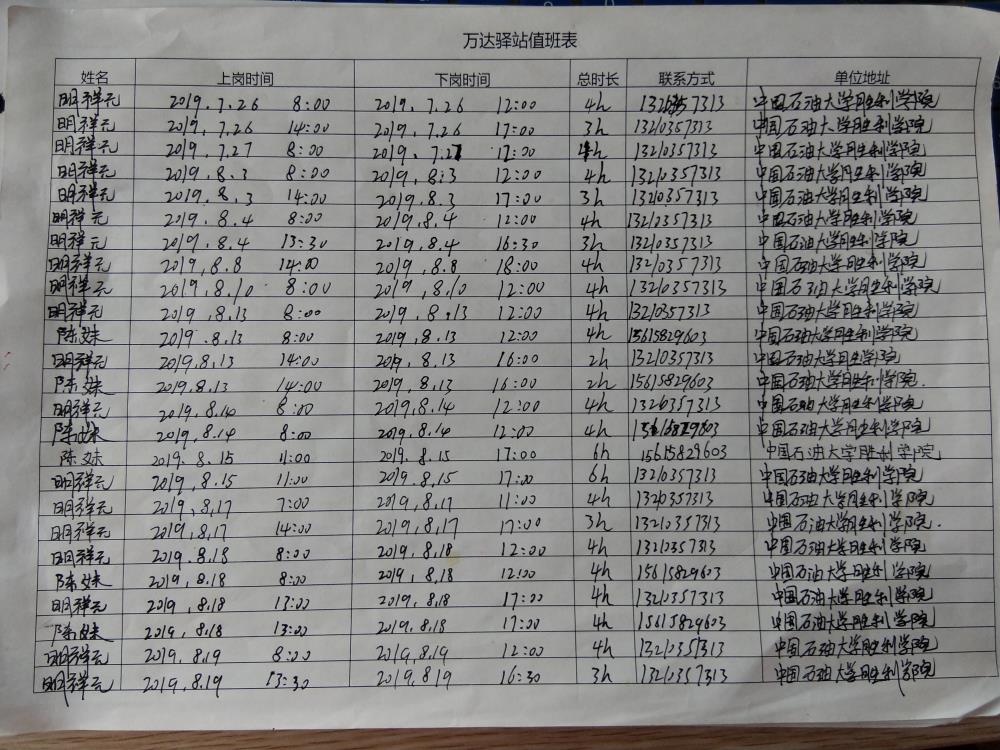 万达驿站值班表
姓名 上岗时间 下岗时间 总时长 联系方式 单位地址
明祥元 2019.7.26 8:00 2019.7.26 12:00 4h 中国石油大学胜利学院
明祥元 2019.7.26 14:00 2019.7.26 17:00 3h 13210357313 中国石油大学胜利学院
明祥元 2019.7.27 8:00 2019.7.27 4h 13210357313 中国石油大学胜利学院
明祥元 2019.8.3 8:00 2019.8.3 12:00 4h 13210357313 中国石油大学胜利学院
明祥元 2019.8.3 14:00 2019.8.3 17:00 3h 13210357313 中国石油大学胜利学院
明祥元 2019.8.4 8:00 2019.8.4 12:00 4h 13210357313 中国石油大学胜利学院
明祥元 2019.8.4 13:30 2019.8.4 16:30 3h 13210357313 中国石油大学胜利学院
明祥元 2019.8.8 14:00 2019.8.8 18:00 4h 13210357313 中国石油大学胜利学院
明祥元 2019.8.10 8:00 2019.8.10 12:00 4h 13210357313 中国石油大学胜利学院
明祥元 2019.8.13 8:00 2019.8.13 12:00 4h 13210357313 中国石油大学胜利学院
陈妹 2019.8.13 8:00 2019.8.13 12:00 4h 15615829603 中国石油大学胜利学院
明祥元 2019.8.13 14:00 2019.8.13 16:00 2h 13210357313 中国石油大学胜利学院
陈妹 2019.8.13 14:00 2019.8.13 16:00 2h 15615829603 中国石油大学胜利学院.
明祥元 2019.8.14 8:00 2019.8.14 12:00 4h 13210357313 中国石油大学胜利学院
陈妹 2019.8.14 8:00 2019.8.14 12:00 4h 中国石油大学胜利学院
陈妹 2019.8.15 11:00 2019.8.15 17:00 6h 15615829603 中国石油大学胜利学院
明祥元 2019.8.15 11:00 2019.8.15 17:00 6h 13210357313 中国石油大学胜利学院
明祥元 2019.8.17 7:00 2019.8.17 11:00 4h 13210357313 中国石油大学胜利学院
明祥元 2019.8.17 14:00 2019.8.17 17:00 3h 13210357313 中国石油大学胜利学院.
明祥元 2019.8.18 8:00 2019.8.18 12:00 4h 13210357313 中国石油大学胜利学院
陈妹 2019.8.18 8:00 2019.8.18 12:00 4h 15615829603 中国石油大学胜利学院
明祥元 2019.8.18 13:00 2019.8.18 17:00 4h 13210357313 中国石油大学胜利学院
陈妹 2019.8.18 13:00 2019.8.18 17:00 4h 15615829603 中国石油大学胜利学院
明祥元 2019.8.19 8:00 2019.8.19 12:00 4h 13210357313 中国石油大学胜利学院
明祥元 2019.8.19 13:30 2019.8.19 16:30 3h 13210357313 中国石油大学胜利学院